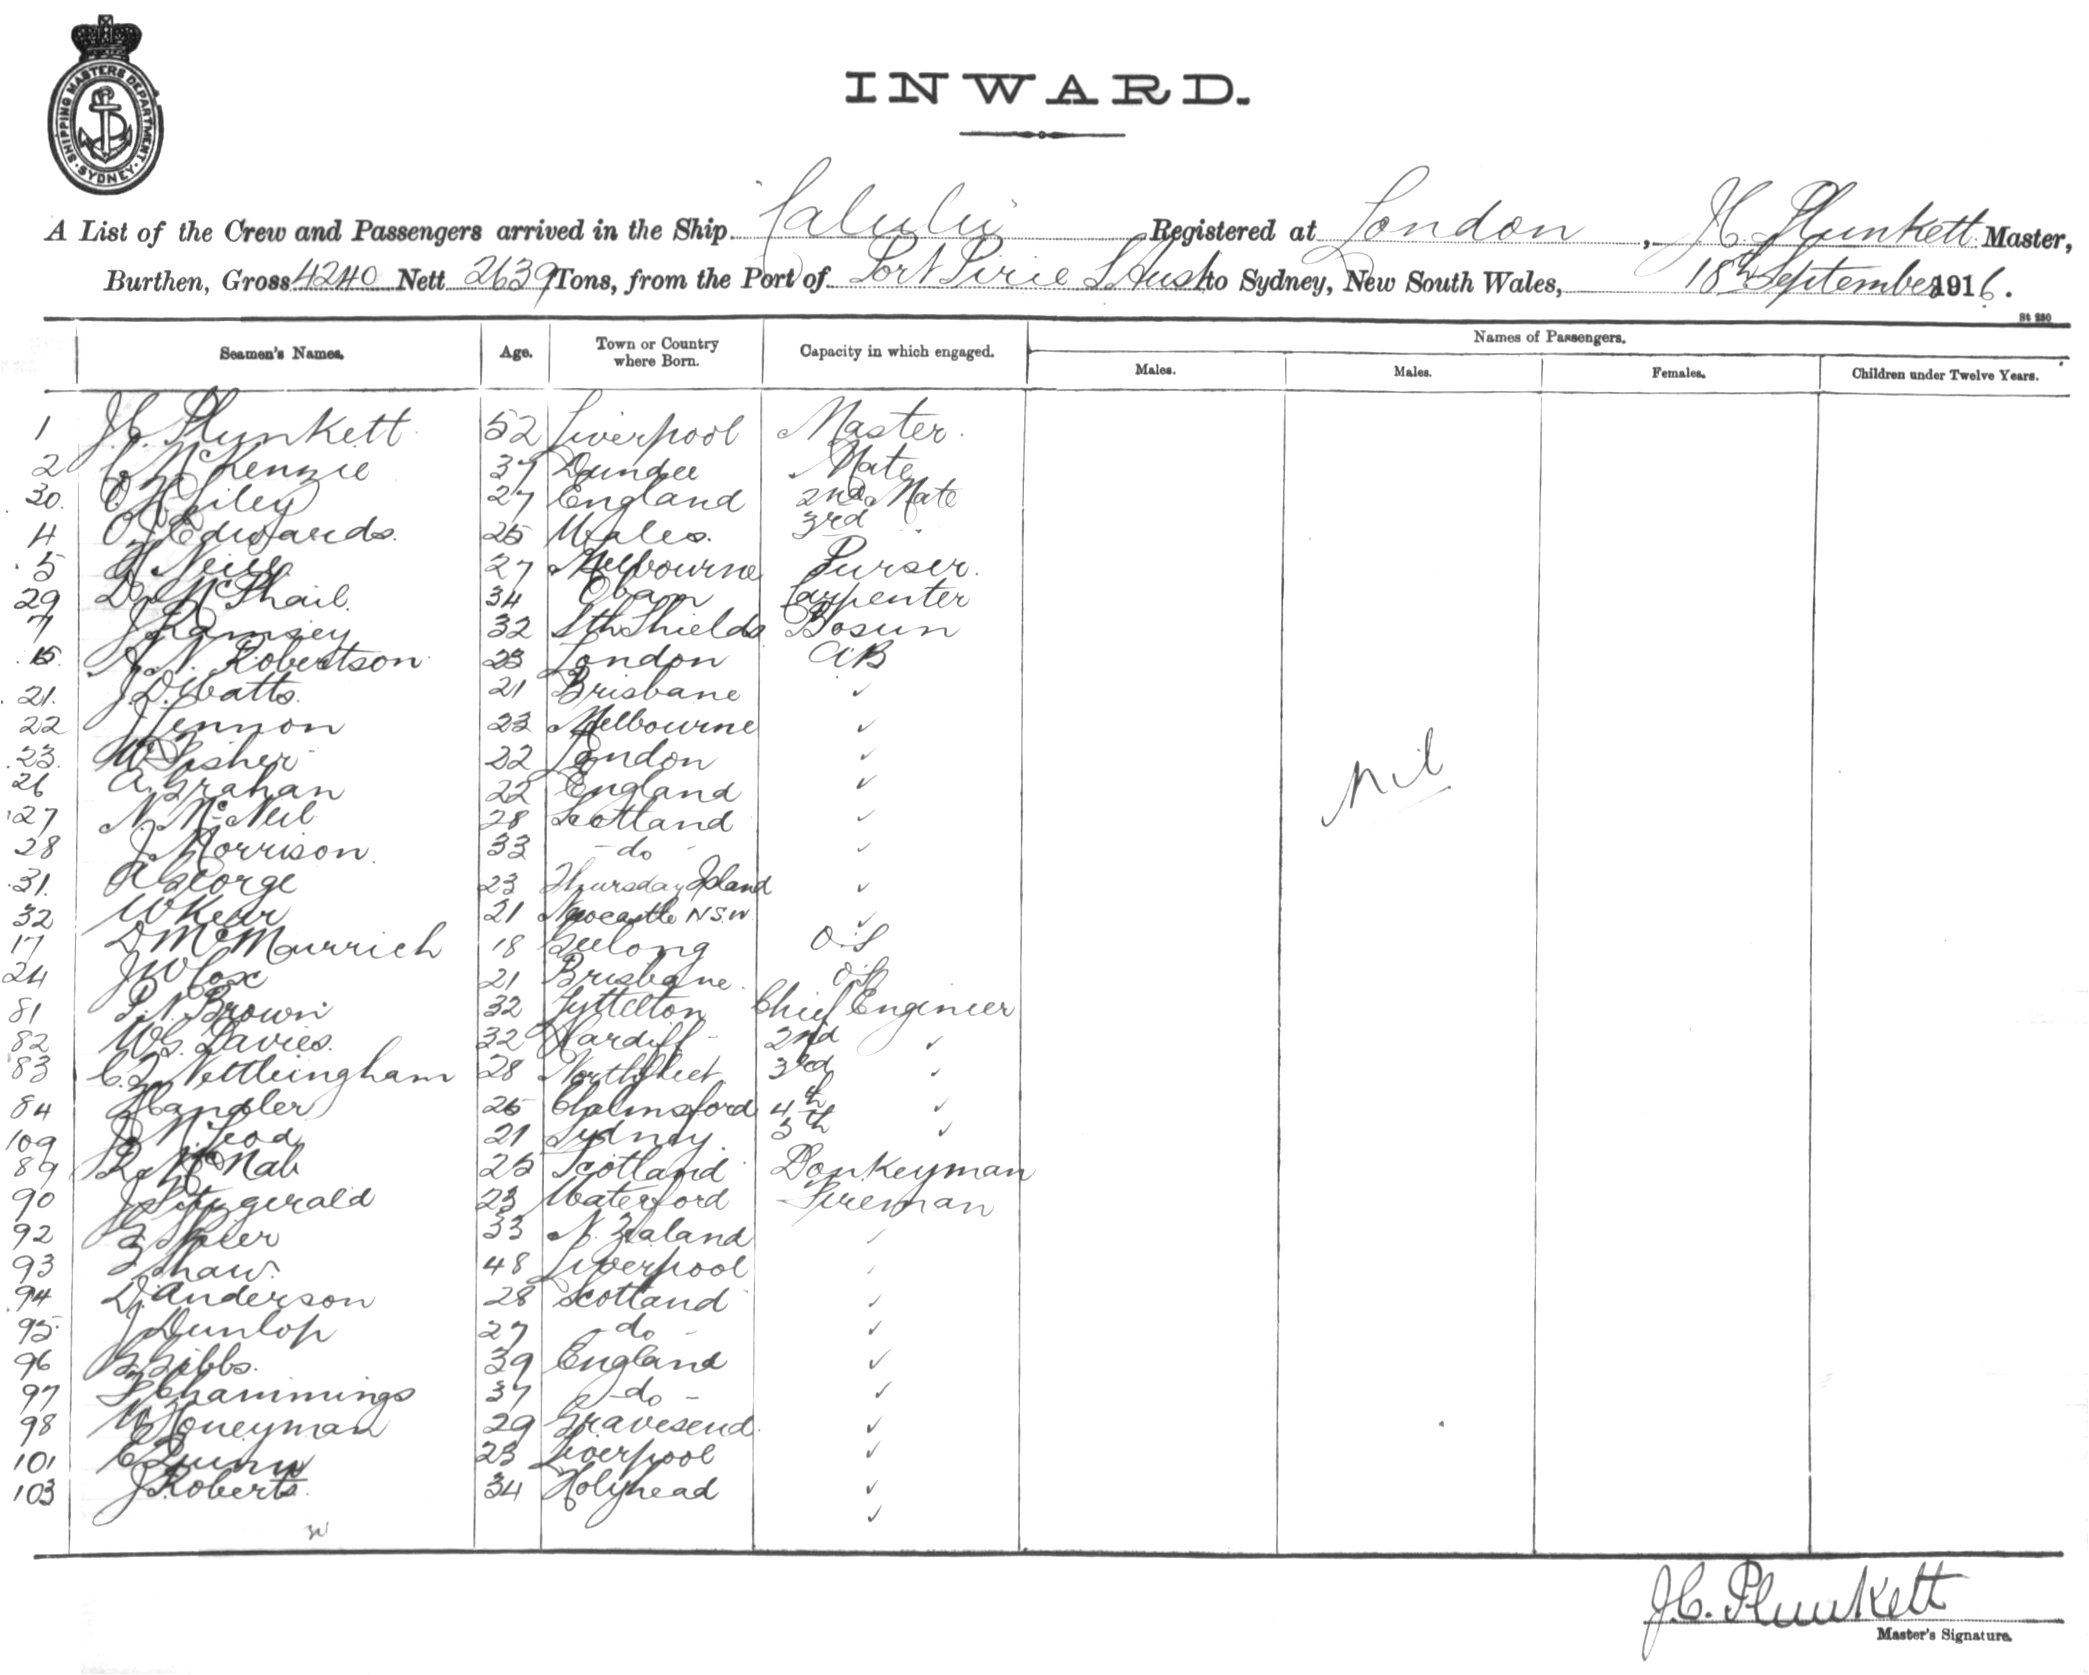 SHIPPING MASTERS DEPARTMENT SYDNEY
INWARD.
A List of the Crew and Passengers arrived in the Ship Calulu Registered at London, J.C. Plunkett Master,
Burthen, Gross 4240 Nett 2639 Tons, from the Port of Port Pirie S Aust to Sydney, New South Wales, 18th September 1916.
St 280
Seamen's Names. Age. Town or Country where Born. Capacity in which engaged. Names of Passengers.
Males. Males. Females. Children under Twelve Years.
1 J.C. Plunkett 52 Liverpool Master.
2 C McKenzie 37 Dundee Mate
30. 27 England 2nd Mate
4 O Edwards. 25 Wales. 3rd "
5 Neill 27 Melbourne Purser.
29 D McPhail. 34 Oban Carpenter
7 J Ramsey 32 Sth Shields Bosun
15 J. N. Robertson 23 London AB
21. J. D. Watts. 21 Brisbane ✓
22 J Lennon 23 Melbourne ✓
23. W Fisher 22 London ✓
26 A. Grahan 22 England ✓
27 N. McNeil 28 Scotland ✓
28 J. Morrison. 33 - do - ✓
31. A George 23 Thursday Island ✓
32 W Kerr 21 Newcastle N.S.W. ✓
17 D McMurrich 18 Geelong O.S
24 J W Cox 21 Brisbane. O.S
81 P. N. Brown 32 Lyttelton Chief Engineer
82 W. G. Davies. 32 Cardiff - 2nd ✓
83 C. Nettleingham 28 Northfleet 3rd ✓
84 Candler 26 Chelmsford 4th ✓
109 McLeod 21 Sydney. 5th ✓
89 R. McNab 25 Scotland Donkeyman
90 J Fitzgerald 23 Waterford Fireman
92 33 N. Zealand ✓
93 Shaw. 48 Liverpool ✓
94 D. Anderson 28 Scotland ✓
95 J Dunlop 27 - do - ✓
96 G Gibbs. 39 England ✓
97 Chammings 37 - do - ✓
98 W Honeyman 29 Gravesend. ✓
101 C Quinn 23 Liverpool ✓
103 J Roberts. 34 Holyhead ✓
✓
Nil
J.C. Plunkett
Master's Signature.